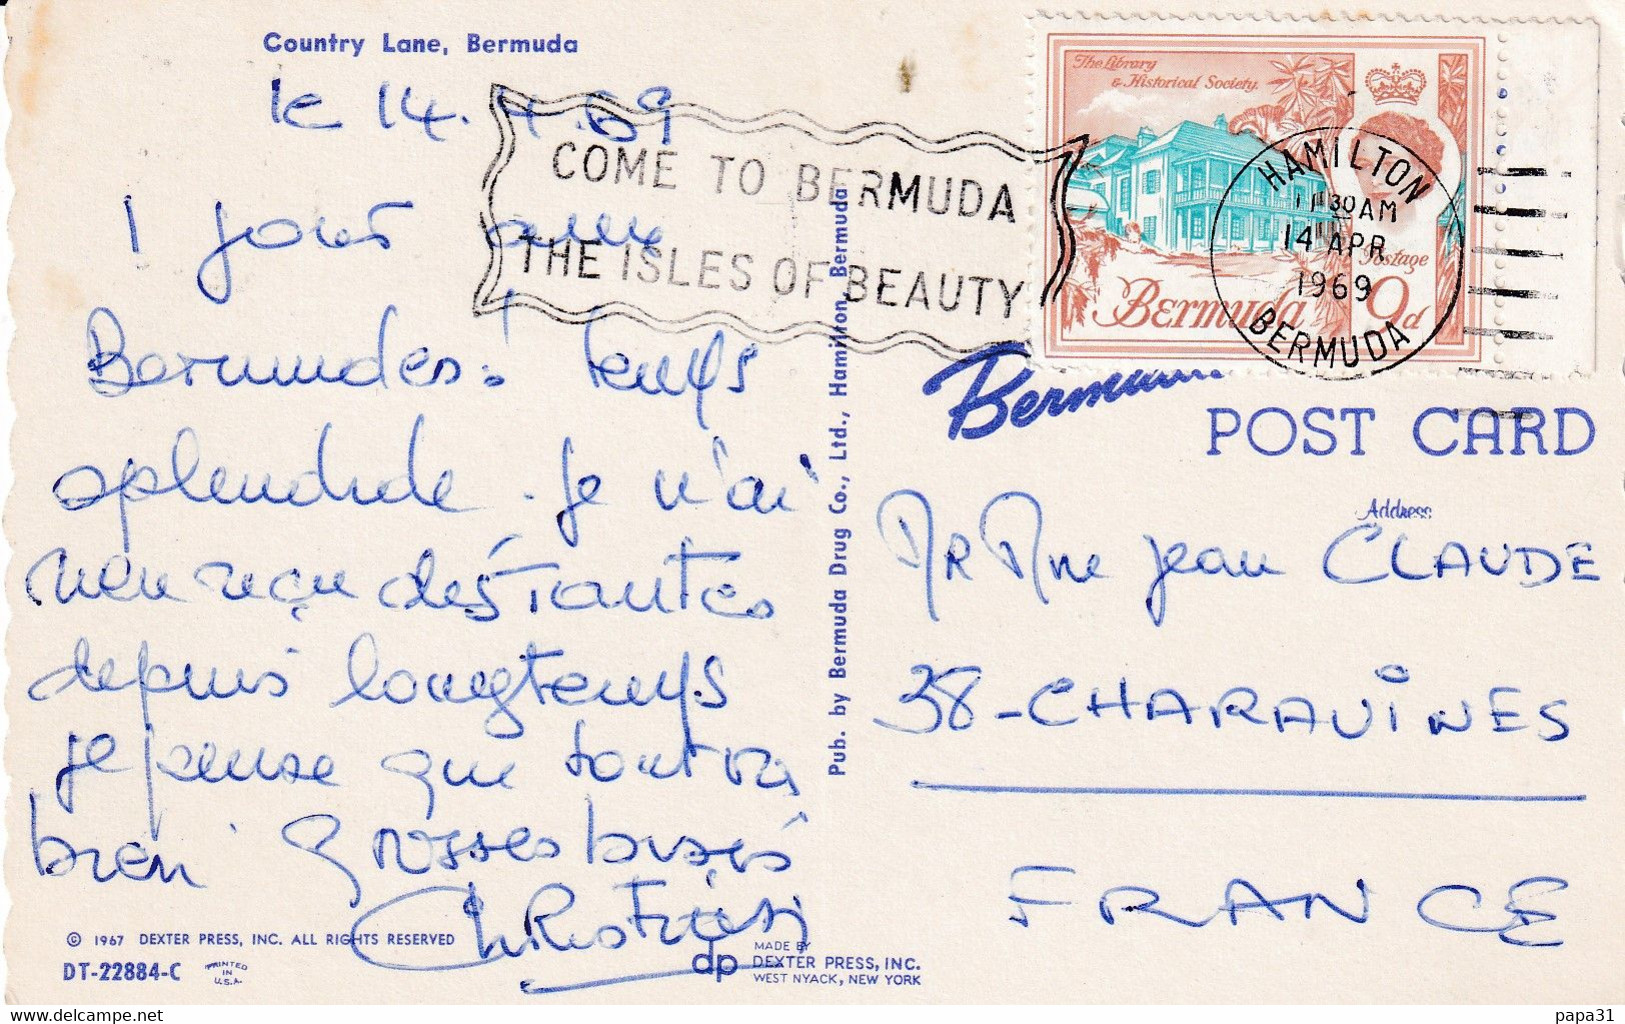 Country Lane, Bermuda
le 14.4.69
1 jour aux
Bermudes! temps
splendide. je n'ai
rien reçu des Tantes
depuis longtemps
je pense que tout va
bien. Grosses bises
The Library
& Historical Society.
Postage
Bermuda 9d
COME TO BERMUDA
THE ISLES OF BEAUTY
HAMILTON
11 30 AM
14 APR
1969
BERMUDA
Pub. by Bermuda Drug Co., Ltd., Hamilton, Bermuda
POST CARD
Address
MR Mme Jean CLAUDE
38-CHARAVINES
FRANCE
© 1967 DEXTER PRESS, INC. ALL RIGHTS RESERVED
DT-22884-C
PRINTED
IN
U.S.A.
dp
MADE BY
DEXTER PRESS, INC.
WEST NYACK, NEW YORK
www.delcampe.net
papa31